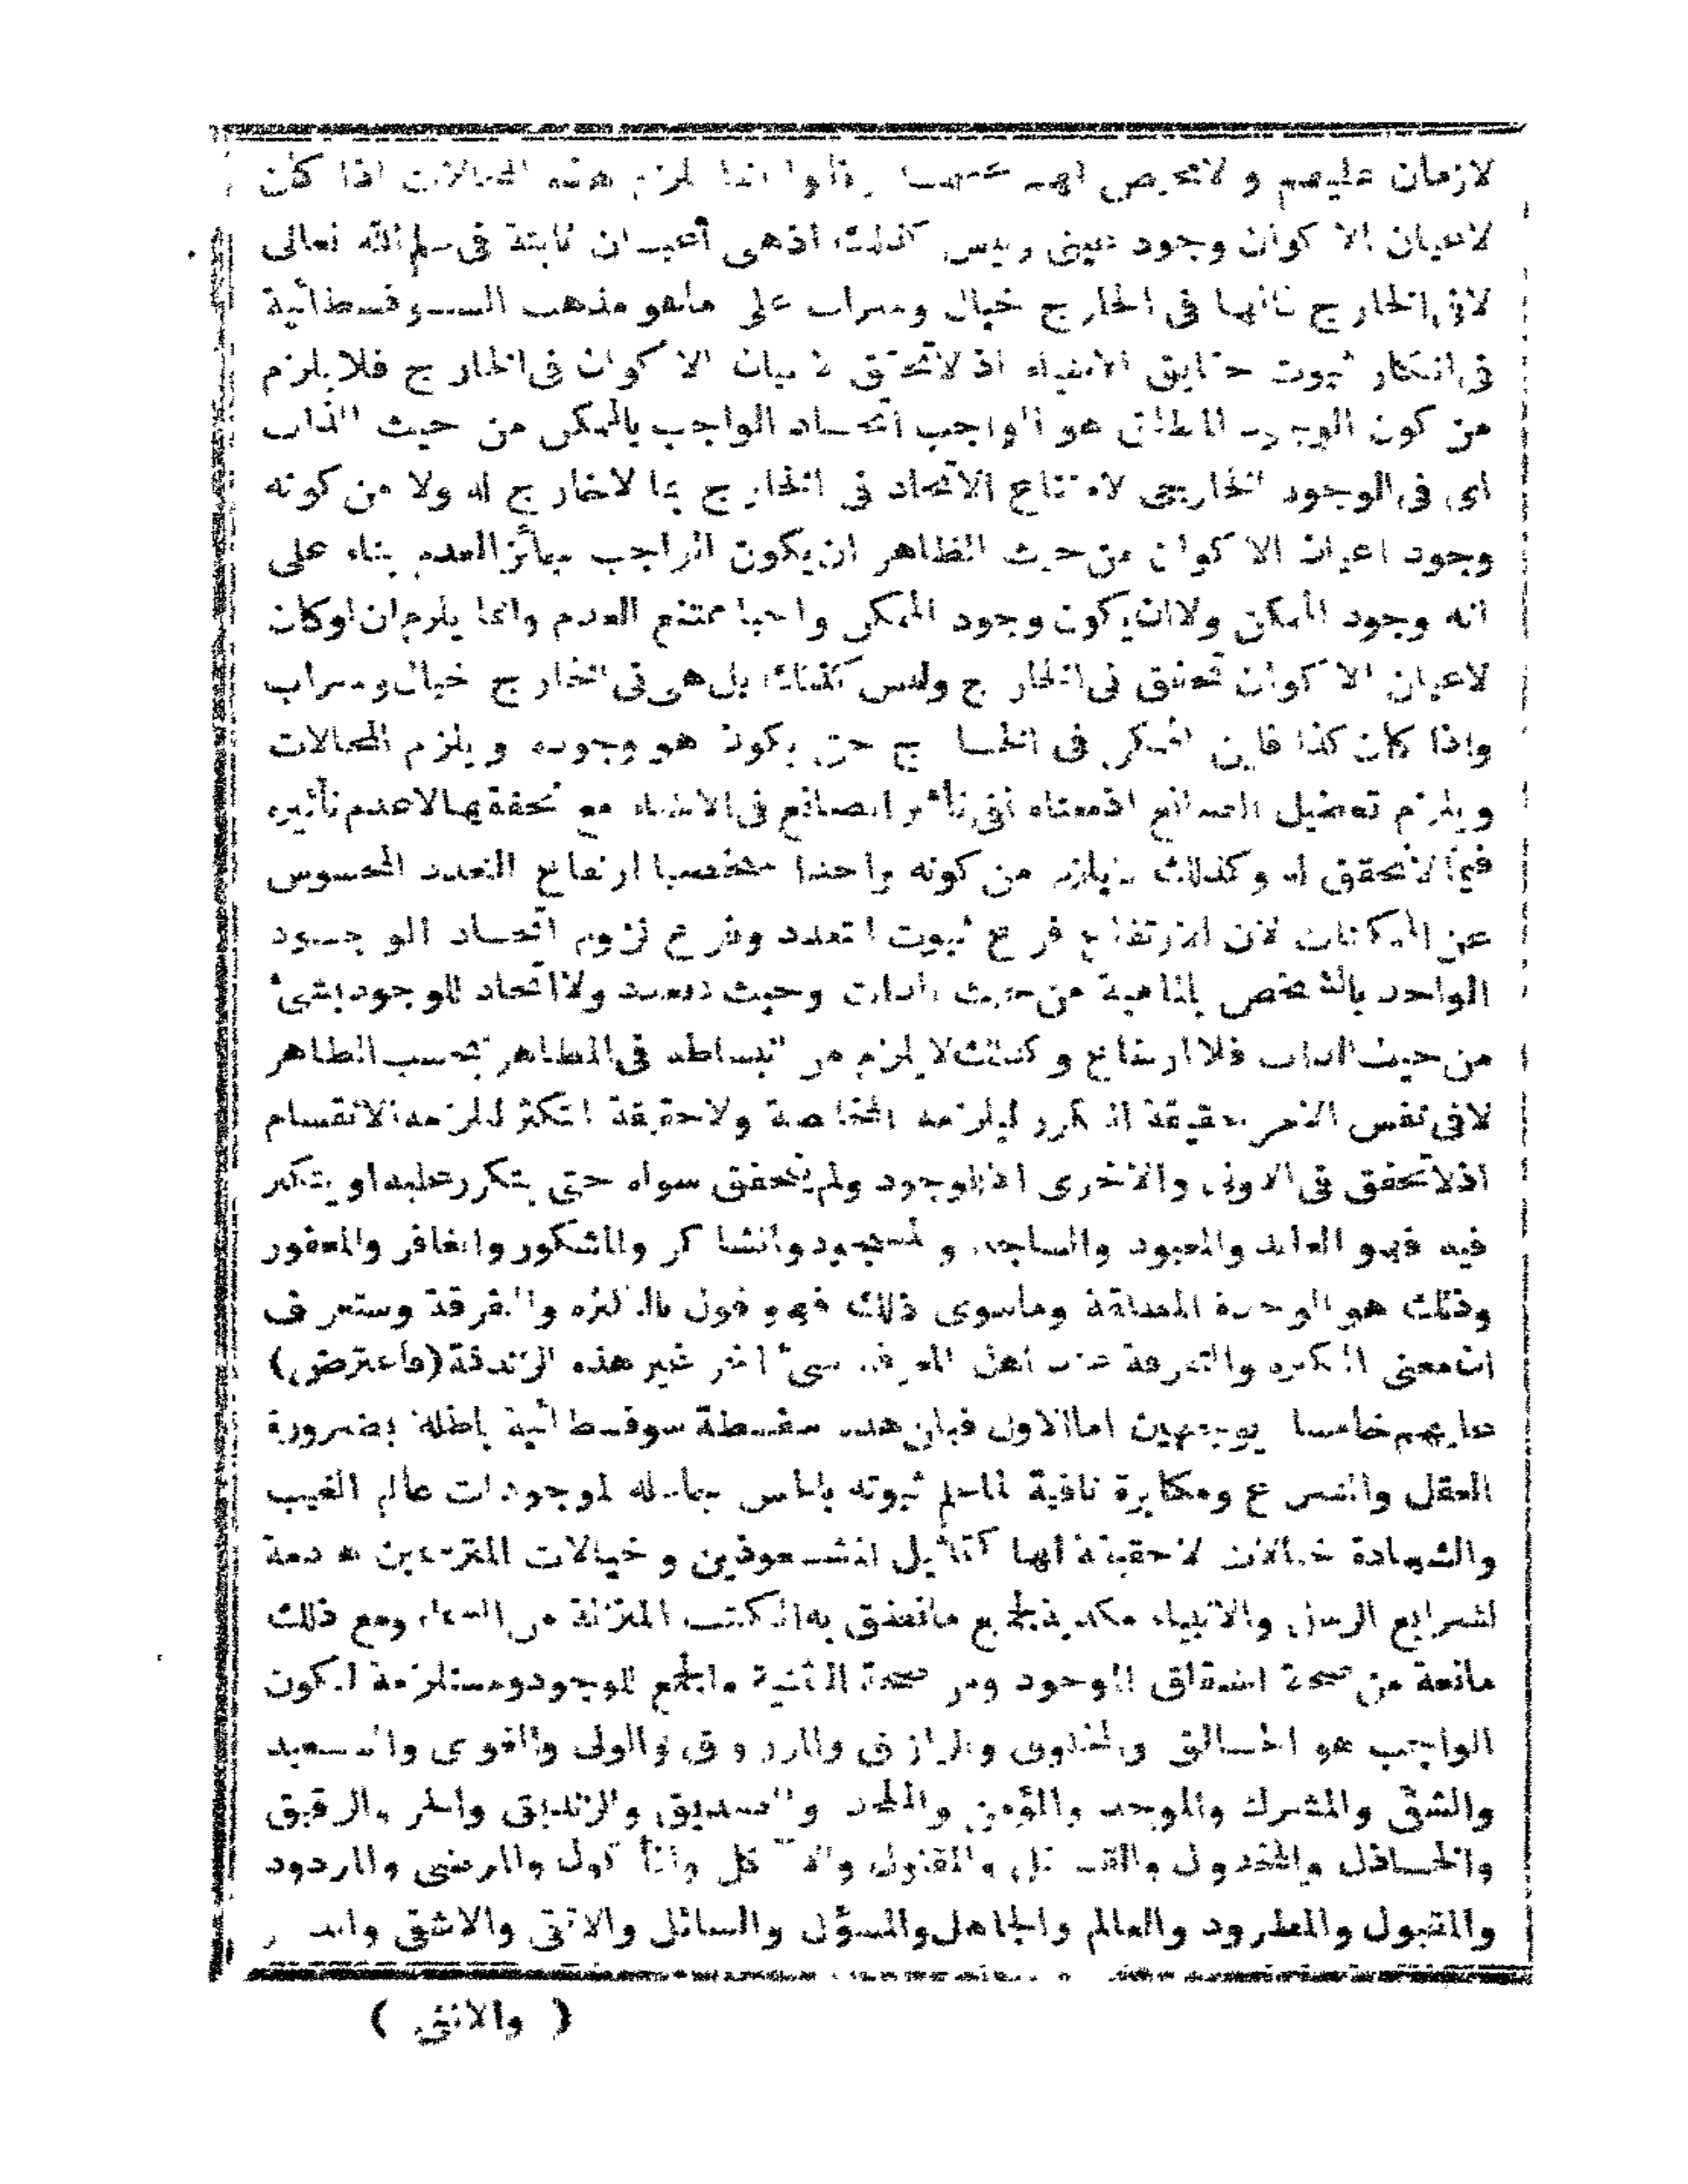 لازمان عليهم ولا مخرص لهم عنهما قالوا انما يلزم هذه المحالات اذا كان
لاعيان الاكوان وجود عينى وليس كذلك اذهى أعيان ثابتة فى علم الله تعالى
لافى الخارج فانها فى الخارج خيال وسراب على ماهو مذهب السوفسطائية
فى انكار ثبوت حقايق الاشياء اذ لاتحقق لاعيان الاكوان فى الخارج فلا يلزم
من كون الوجود المطلق هو الواجب اتحاد الواجب بالممكن من حيث الذات
اى فى الوجود الخارجى لامتناع الاتحاد فى الخارج بما لاخارج له ولا من كونه
وجود اعيان الاكوان من حيث الظاهر ان يكون الواجب جائز العدم بناء على
انه وجود الممكن ولاان يكون وجود الممكن واجبا ممتنع العدم وانما يلزم ان لوكان
لاعيان الاكوان تحقق فى الخارج وليس كذلك بل هى فى الخارج خيال وسراب
واذا كان كذا فاين الممكن فى الخارج حتى يكون هو وجوده ويلزم المحالات
ويلزم تعطيل الصانع اذمعناه نفى تأثير الصانع فى الاشياء مع تحققها لاعدم تأثيره
فيما لاتحقق له وكذلك لايلزم من كونه واحدا شخصيا ارتفاع التعدد المحسوس
عن الممكنات لان الارتفاع فرع ثبوت التعدد وفرع لزوم اتحاد الوجود
الواحد بالشخص بالماهية من حيث الذات وحيث لاتعدد ولااتحاد للوجود بشئ
من حيث الذات فلاارتفاع وكذلك لا يلزم من انبساطه فى المظاهر بحسب الظاهر
لافى نفس الامر حقيقة التكرر ليلزمه المخالصة ولاحقيقة التكثر لیلزمه الانقسام
اذلاتحقق فى الاولى والاخرى الاللوجود ولم يتحقق سواه حتى يتكرر عليه او يتكثر
فيه فهو العابد والمعبود والساجد والمسجود والشاكر والمشكور والغافر والمغفور
وذلك هو الوحدة المطلقة وماسوى ذلك فهو قول بالكثرة والتفرقة وستعرف
ان معنى الكثرة والتفرقة عند أهل المعرفة شئ اخر غير هذه الزندقة (فاعترض)
عليهم خامسا بوجهين اماالاول فبان هذه سفسطة سوفسطائية باطلة بضرورة
العقل والشرع ومكابرة نافية لماعلم ثبوته بالحس جاعلة لموجودات عالم الغيب
والشهادة خيالات لاحقيقة لها كتماثيل المشعوذين وخيالات المتبرسمين هادمة
لشرايع الرسل والانبياء مكذبة لجميع مانطق به الكتب المنزلة من السماء ومع ذلك
مانعة من صحة اشتقاق الوجود ومن صحة التثنية والجمع للوجود ومستلزمة لكون
الواجب هو الخالق والمخلوق والرازق والمرزوق والولى والغوى والسعيد
والشقى والمشرك والموحد والمؤمن والملحد والصديق والزنديق والحر والرقيق
والخاذل والمخذول والقاتل والمقتول والآكل والمأكول والمرضى والمردود
والمقبول والمطرود والعالم والجاهل والمسؤل والسائل والاتقى والاشقى
( والانثى )